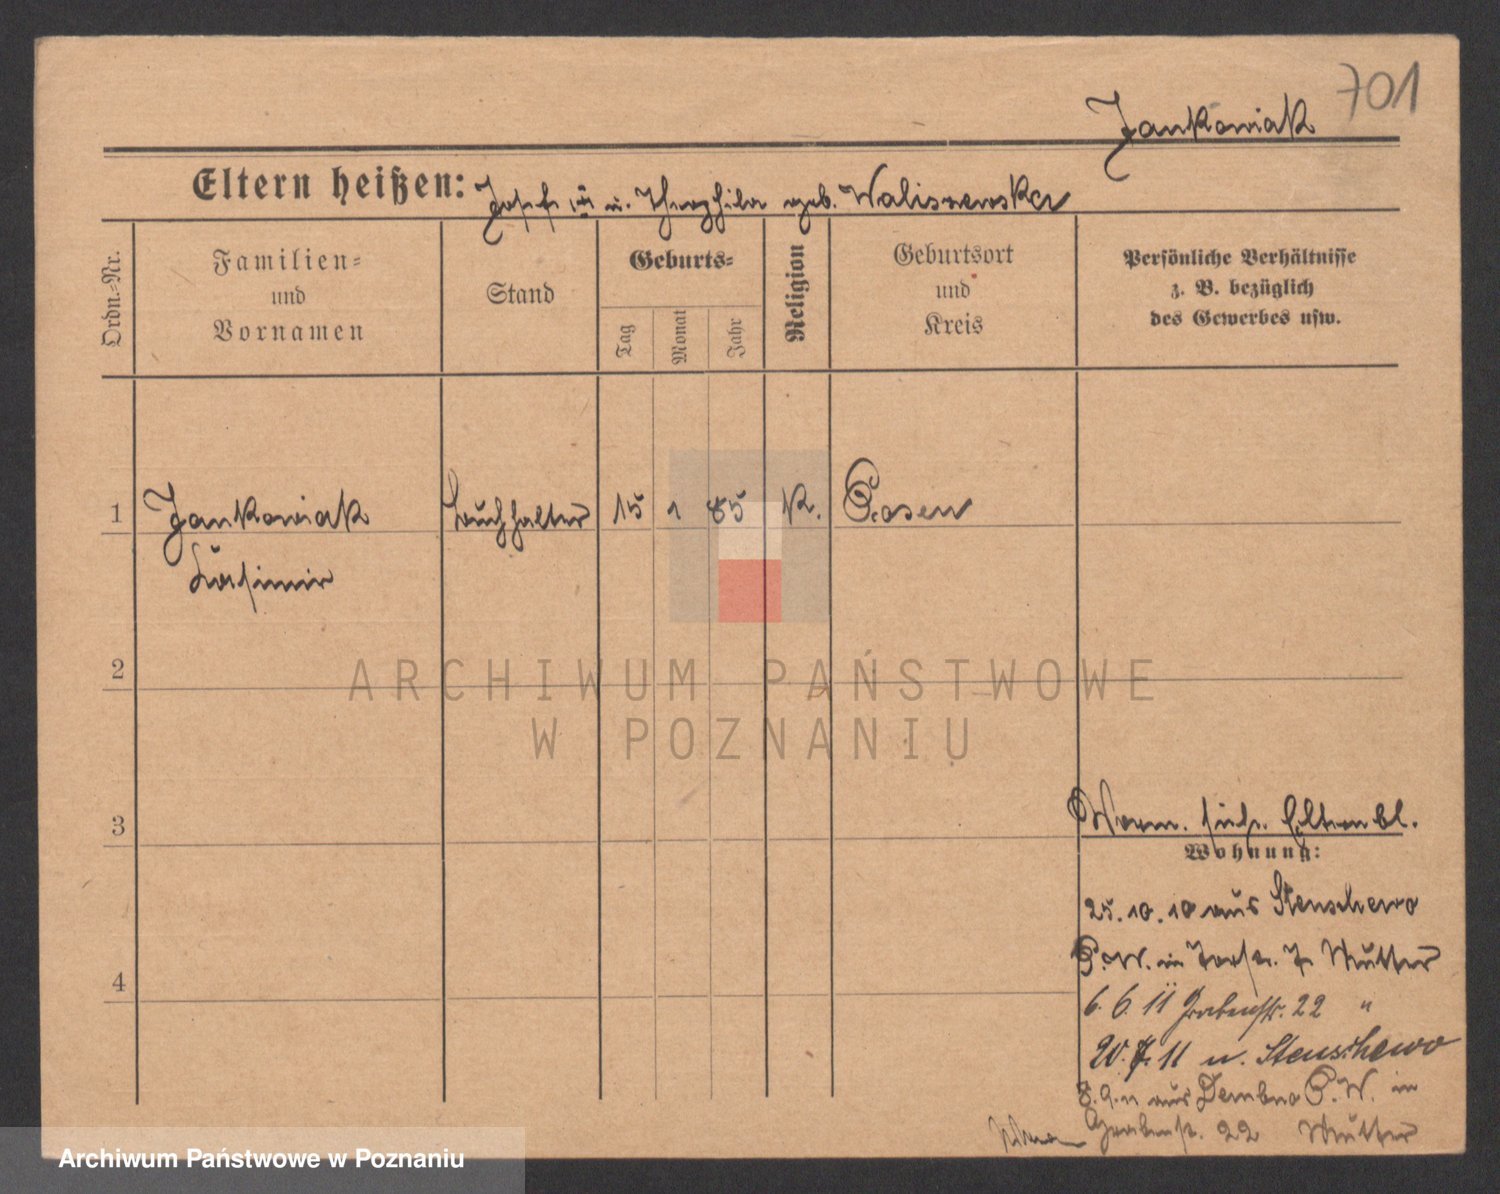 701
Jankowiak
Eltern heißen: Josef u. Theophila geb. Waliszewska
Ordn.=Nr.
Familien=
und
Vornamen
Stand
Geburts=
Tag
Monat
Jahr
Religion
Geburtsort
und
Kreis
Persönliche Verhältnisse
z. B. bezüglich
des Gewerbes usw.
1 Jankowiak Buchhalter 15 1 85 K. Posen
Kasimir
2
ARCHIWUM PAŃSTWOWE
W POZNANIU
3
Vorm. sieh. Elternbl.
Wohnung:
25.10.10 aus Stenschewo
P.W. in 7 Mutter
6.6.11 Grabenstr. 22 "
20.7.11 n. Stenschewo
4
8.9.11 aus Dembno P.W. in
Grabenstr. 22 Mutter
Archiwum Państwowe w Poznaniu